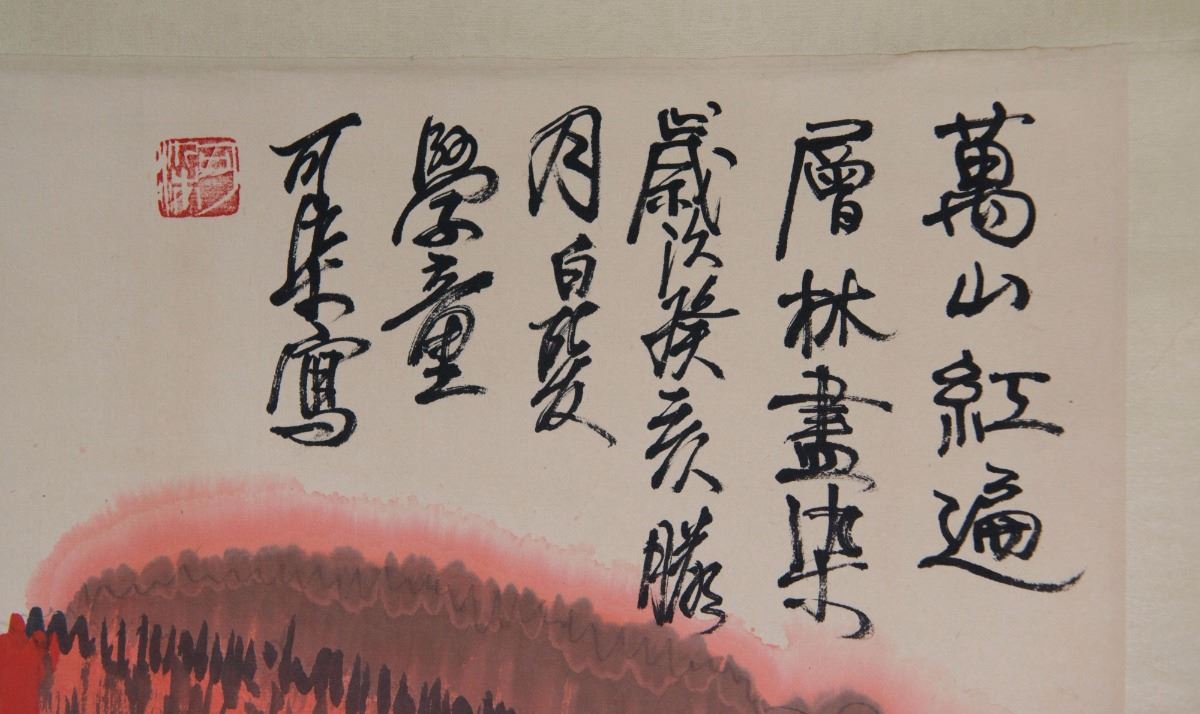 萬山紅遍
層林盡染
歲次癸亥臘
月白髮
學童
可染寫